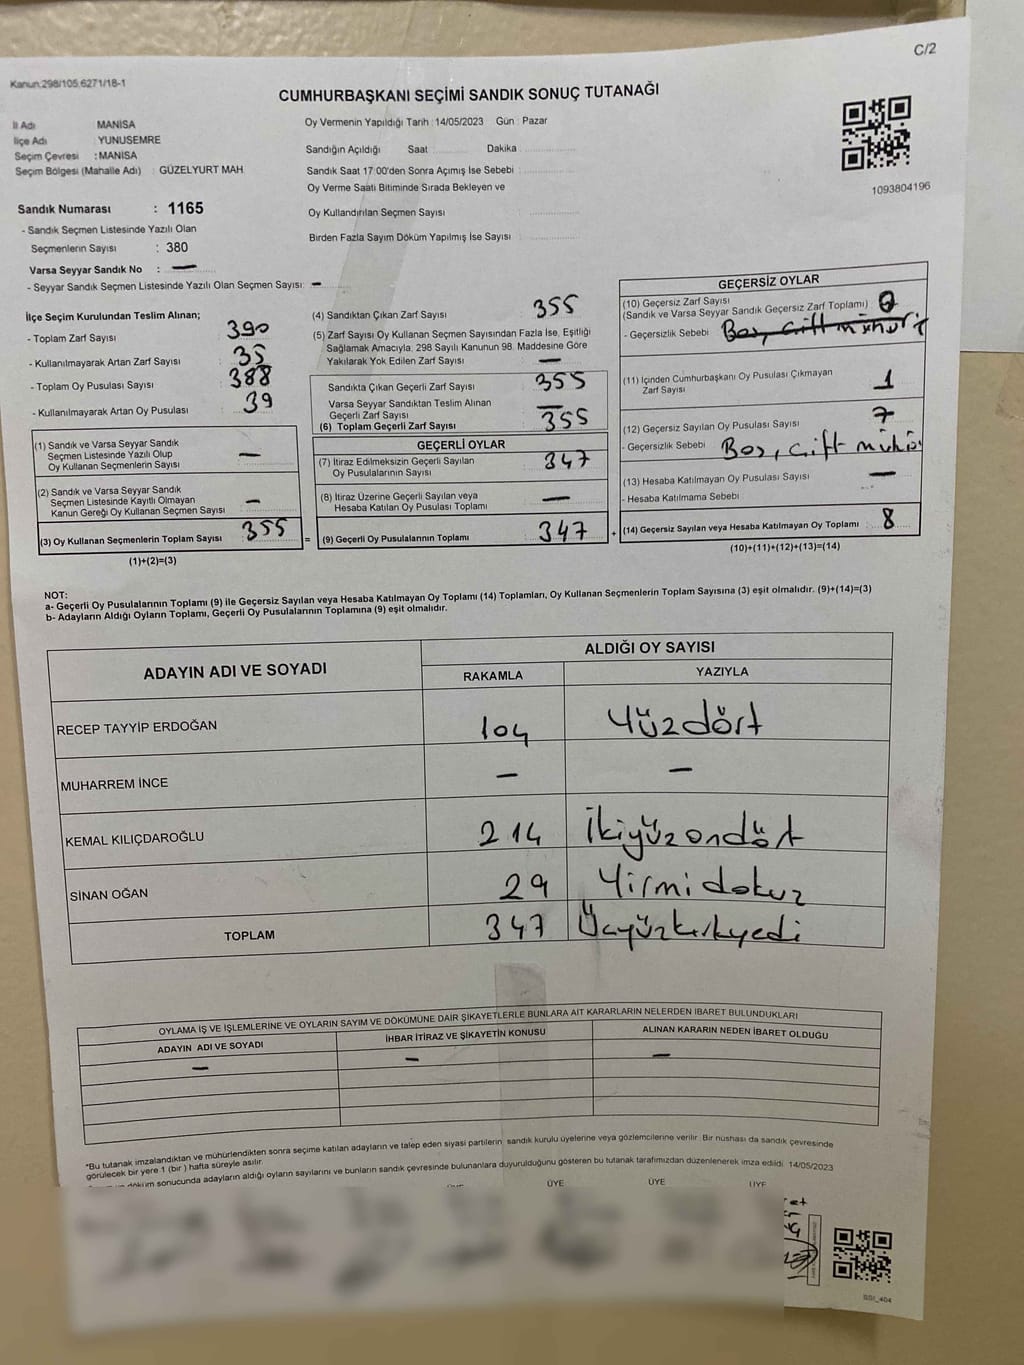 C/2
Kanun:298/105.6271/18-1
CUMHURBAŞKANI SEÇİMİ SANDIK SONUÇ TUTANAĞI
İl Adı : MANİSA
İlçe Adı : YUNUSEMRE
Seçim Çevresi : MANİSA
Seçim Bölgesi (Mahalle Adı) : GÜZELYURT MAH
Sandık Numarası : 1165
- Sandık Seçmen Listesinde Yazılı Olan
Seçmenlerin Sayısı : 380
Varsa Seyyar Sandık No : —
- Seyyar Sandık Seçmen Listesinde Yazılı Olan Seçmen Sayısı: —
Oy Vermenin Yapıldığı Tarih : 14/05/2023 Gün : Pazar
Sandığın Açıldığı Saat Dakika
Sandık Saat 17:00'den Sonra Açımış İse Sebebi :
Oy Verme Saati Bitiminde Sırada Bekleyen ve
Oy Kullandırılan Seçmen Sayısı
Birden Fazla Sayım Döküm Yapılmış İse Sayısı :
1093804196
İlçe Seçim Kurulundan Teslim Alınan;
- Toplam Zarf Sayısı 390
- Kullanılmayarak Artan Zarf Sayısı 35
- Toplam Oy Pusulası Sayısı 388
- Kullanılmayarak Artan Oy Pusulası 39
(1) Sandık ve Varsa Seyyar Sandık
Seçmen Listesinde Yazılı Olup
Oy Kullanan Seçmenlerin Sayısı —
(2) Sandık ve Varsa Seyyar Sandık
Seçmen Listesinde Kayıtlı Olmayan
Kanun Gereği Oy Kullanan Seçmen Sayısı —
(3) Oy Kullanan Seçmenlerin Toplam Sayısı 355
(1)+(2)=(3)
(4) Sandıktan Çıkan Zarf Sayısı : 355
(5) Zarf Sayısı Oy Kullanan Seçmen Sayısından Fazla İse, Eşitliği
Sağlamak Amacıyla, 298 Sayılı Kanunun 98. Maddesine Göre
Yakılarak Yok Edilen Zarf Sayısı —
Sandıkta Çıkan Geçerli Zarf Sayısı 355
Varsa Seyyar Sandıktan Teslim Alınan
Geçerli Zarf Sayısı —
(6) Toplam Geçerli Zarf Sayısı 355
GEÇERLİ OYLAR
(7) İtiraz Edilmeksizin Geçerli Sayılan
Oy Pusulalarının Sayısı 347
(8) İtiraz Üzerine Geçerli Sayılan veya
Hesaba Katılan Oy Pusulası Toplamı —
= (9) Geçerli Oy Pusulalarının Toplamı 347 +
GEÇERSİZ OYLAR
(10) Geçersiz Zarf Sayısı
(Sandık ve Varsa Seyyar Sandık Geçersiz Zarf Toplamı) 0
- Geçersizlik Sebebi Boş, çift mühür
(11) İçinden Cumhurbaşkanı Oy Pusulası Çıkmayan
Zarf Sayısı 1
(12) Geçersiz Sayılan Oy Pusulası Sayısı 7
- Geçersizlik Sebebi Boş, çift mühür
(13) Hesaba Katılmayan Oy Pusulası Sayısı —
- Hesaba Katılmama Sebebi
(14) Geçersiz Sayılan veya Hesaba Katılmayan Oy Toplamı 8
(10)+(11)+(12)+(13)=(14)
NOT:
a- Geçerli Oy Pusulalarının Toplamı (9) ile Geçersiz Sayılan veya Hesaba Katılmayan Oy Toplamı (14) Toplamları, Oy Kullanan Seçmenlerin Toplam Sayısına (3) eşit olmalıdır. (9)+(14)=(3)
b- Adayların Aldığı Oyların Toplamı, Geçerli Oy Pusulalarının Toplamına (9) eşit olmalıdır.
ADAYIN ADI VE SOYADI ALDIĞI OY SAYISI
RAKAMLA YAZIYLA
RECEP TAYYİP ERDOĞAN 104 Yüzdört
MUHARREM İNCE — —
KEMAL KILIÇDAROĞLU 214 İkiyüzondört
SİNAN OĞAN 29 Yirmidokuz
TOPLAM 347 Üçyüzkırkyedi
OYLAMA İŞ VE İŞLEMLERİNE VE OYLARIN SAYIM VE DÖKÜMÜNE DAİR ŞİKAYETLERLE BUNLARA AİT KARARLARIN NELERDEN İBARET BULUNDUKLARI
ADAYIN ADI VE SOYADI İHBAR İTİRAZ VE ŞİKAYETİN KONUSU ALINAN KARARIN NEDEN İBARET OLDUĞU
— — —
*Bu tutanak imzalandıktan ve mühürlendikten sonra seçime katılan adayların ve talep eden siyasi partilerin, sandık kurulu üyelerine veya gözlemcilerine verilir. Bir nüshası da sandık çevresinde
görülecek bir yere 1 (bir) hafta süreyle asılır.
döküm sonucunda adayların aldığı oyların sayılarını ve bunların sandık çevresinde bulunanlara duyurulduğunu gösteren bu tutanak tarafımızdan düzenlenerek imza edildi. 14/05/2023
ÜYE ÜYE ÜYE